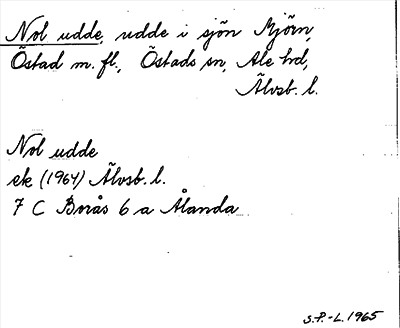 Nol udde, udde i sjön Mjörn,
Östad m. fl., Östads sn, Ale hd,
Älvsb. l.
Nol udde
ek (1964) Älvsb. l.
7 C Borås 6 a Ålanda
S.P.-L. 1965